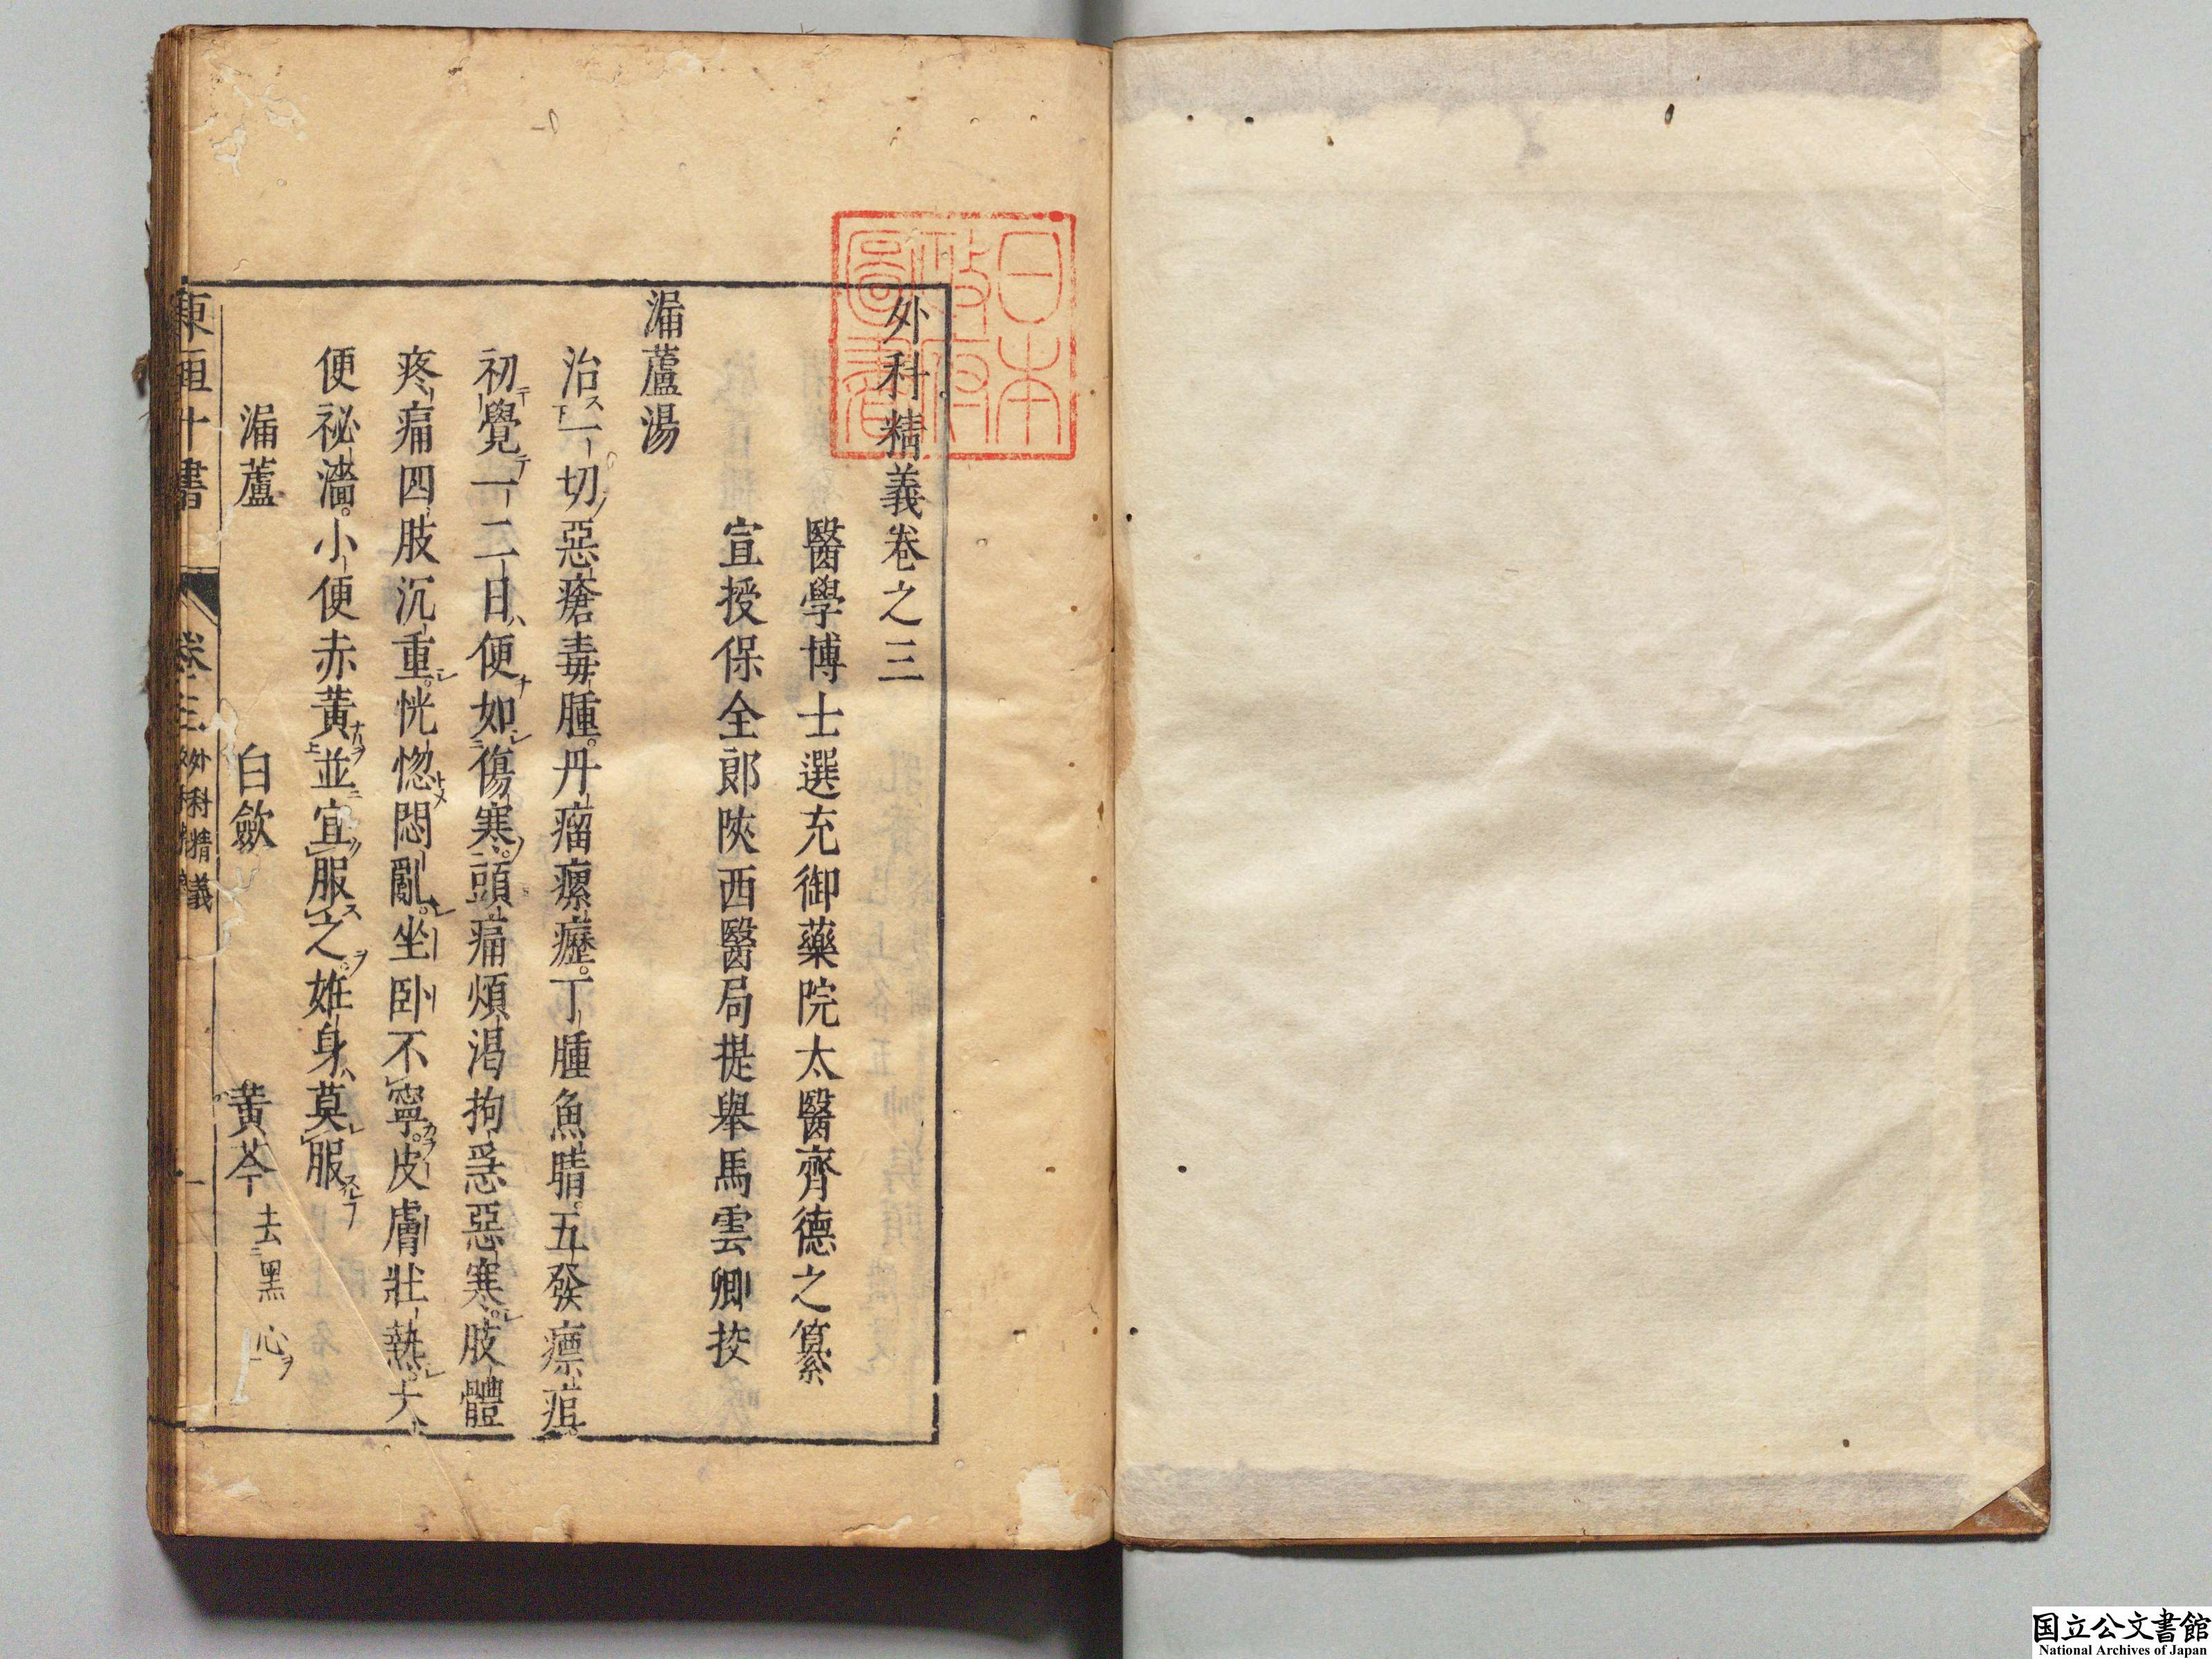 日本
政府
圖書
外科精義卷之三
醫學博士選充御藥院太醫齊德之纂
宣授保全郎陜西醫局提舉馬雲卿挍
漏蘆湯
治一切惡瘡毒腫。丹瘤瘰癧。丁腫魚睛。五發瘭疽。
初覺一二日便如傷寒。頭痛煩渴拘急惡寒。肢體
疼痛四肢沉重。恍惚悶亂。坐卧不寧。皮膚壯熱。大
便祕濇。小便赤黃並宜服之。姙身莫服
漏蘆 白歛 黃芩去黑心
東垣十書 卷三 外科精義 一
国立公文書館
National Archives of Japan